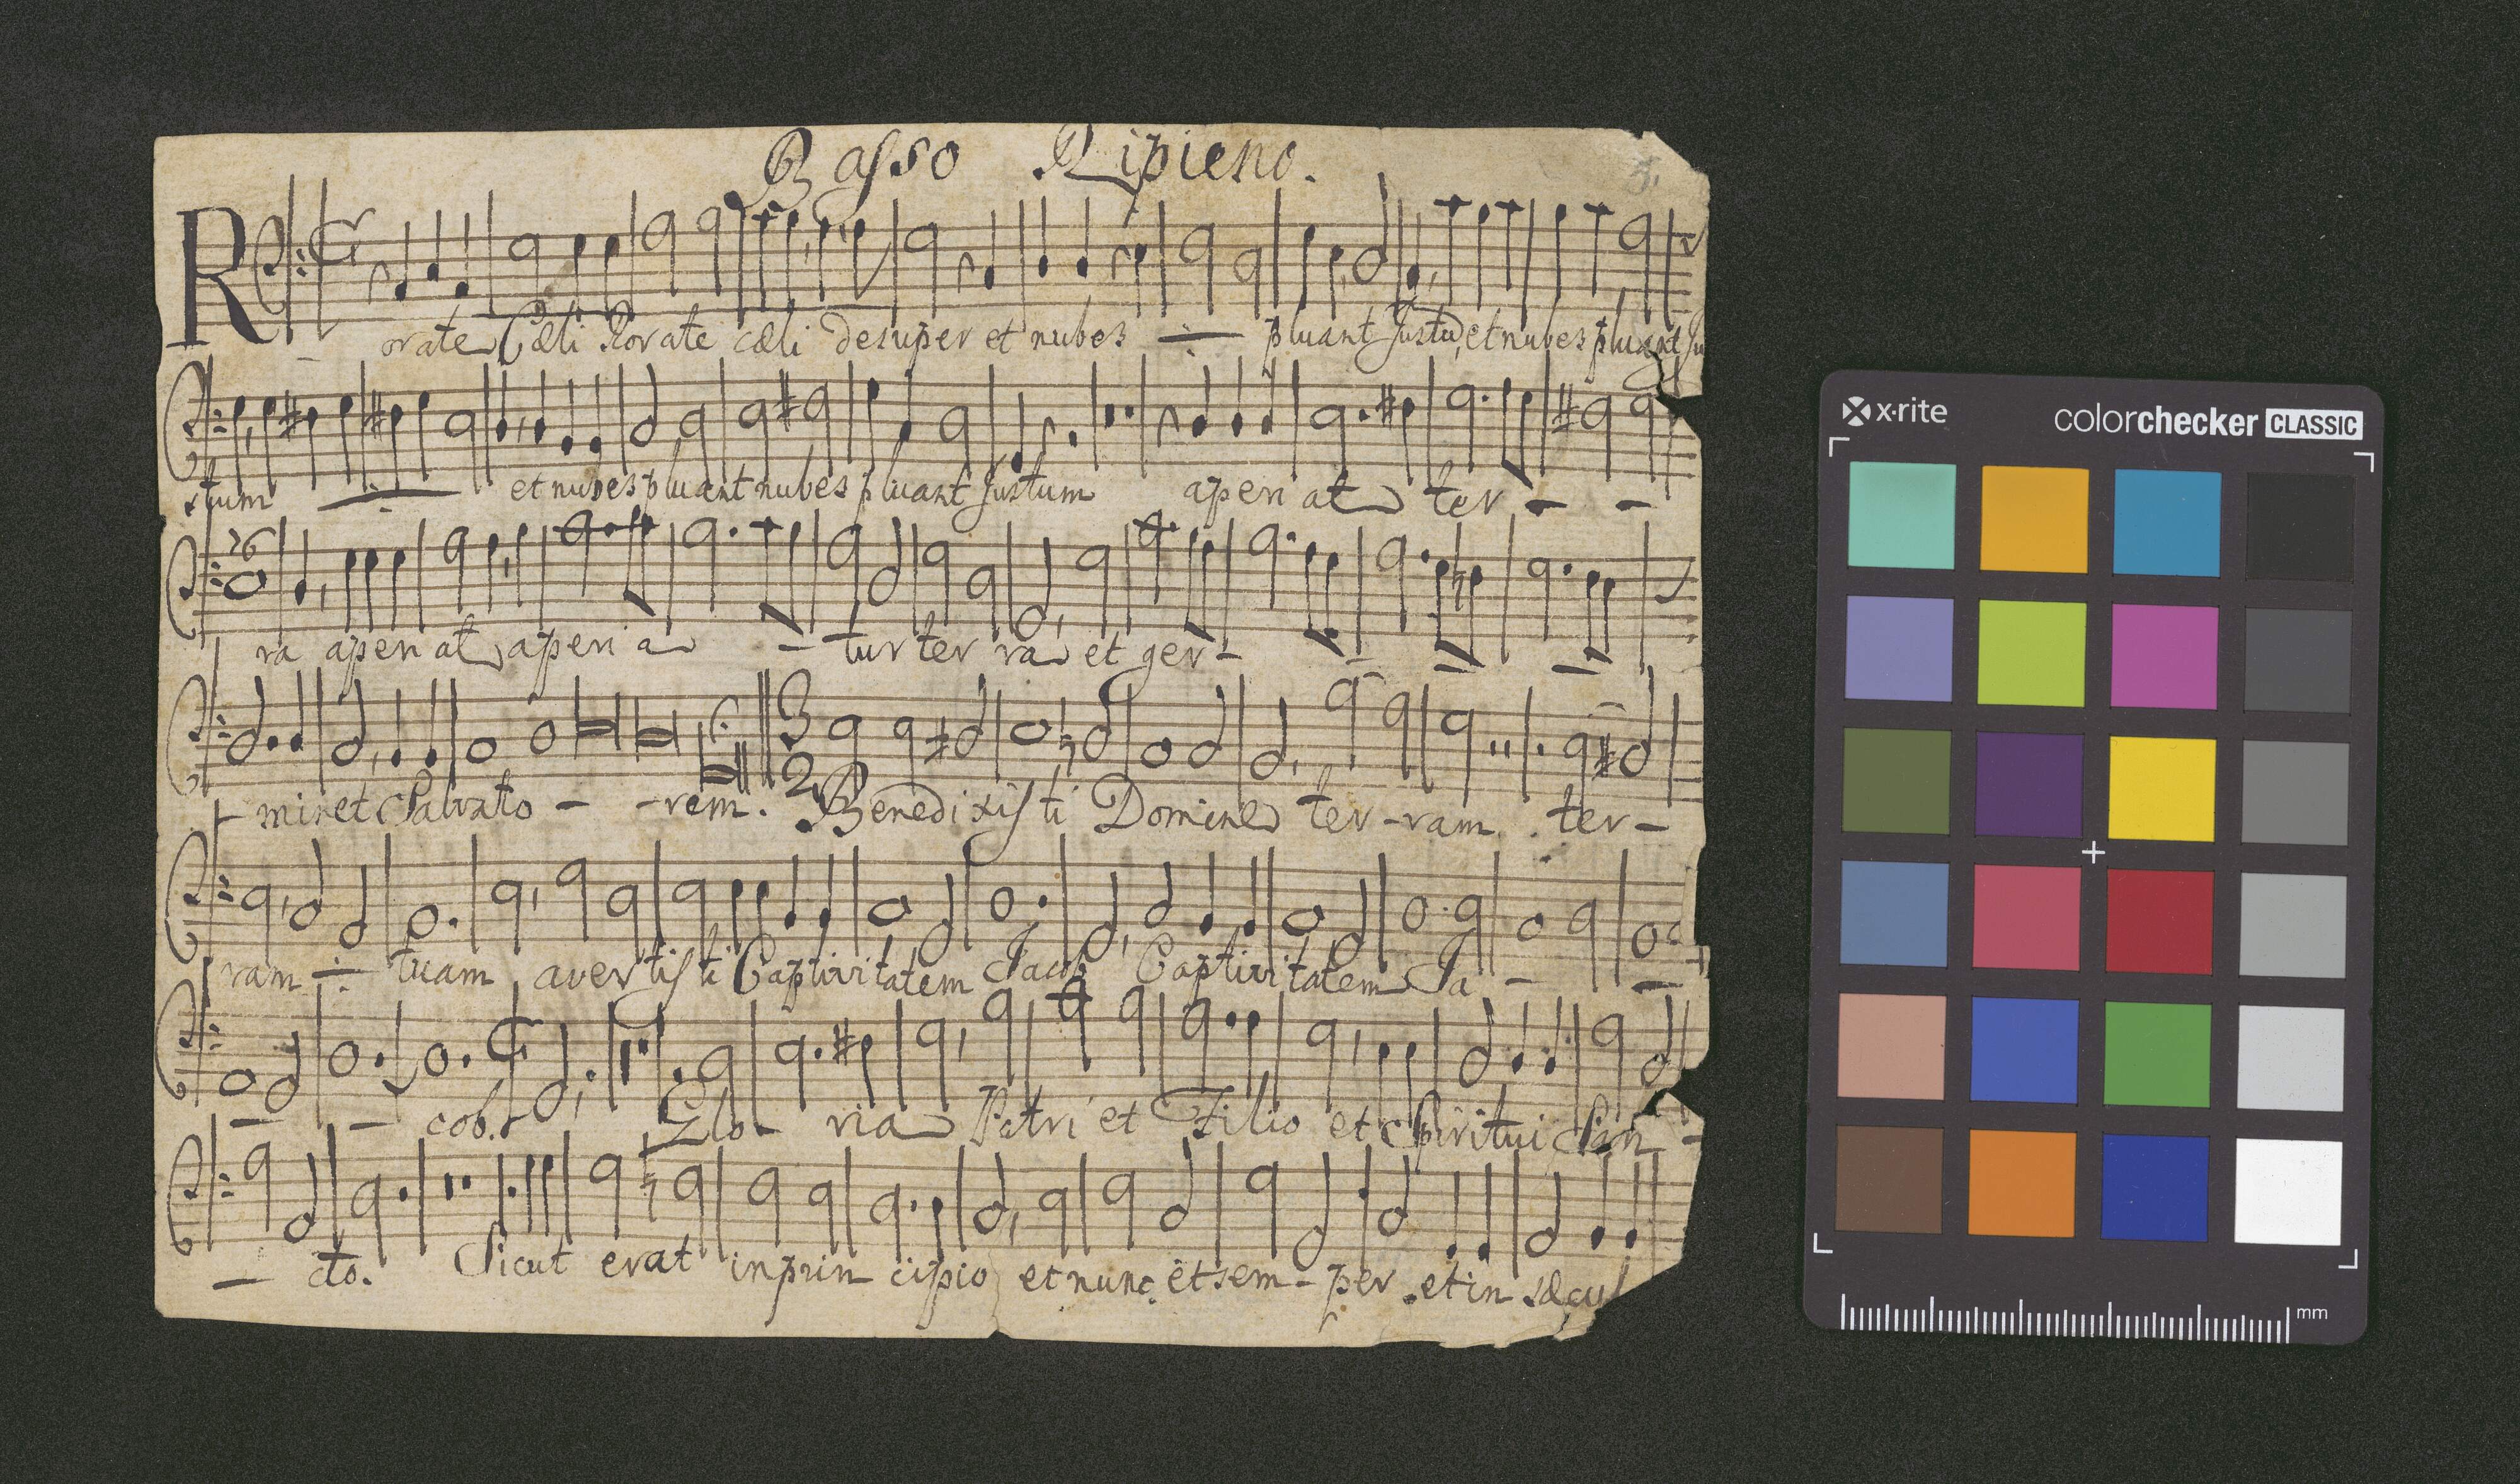 Basso Ripieno.
5.
Rorate Cæli Rorate cæli desuper et nubes pluant Justū, et nubes pluant Ju
stum et nubes pluant nubes pluant Justum aperiat ter - -
76
ra aperiat aperia - tur ter ra et ger - - - -
- minet Salvato - - rem. Benedixisti Domine ter - ram. ter -
3
2
ram tuam avertisti Captivitatem Jacob Captivitatem Ja - -
- - cob. Glo - ria Patri et Filio et Spiritui San -
- cto. Sicut erat in prin cipio et nunc et sem - per et in sæcul
x·rite colorchecker CLASSIC
mm